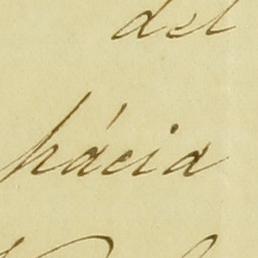 del
hácia